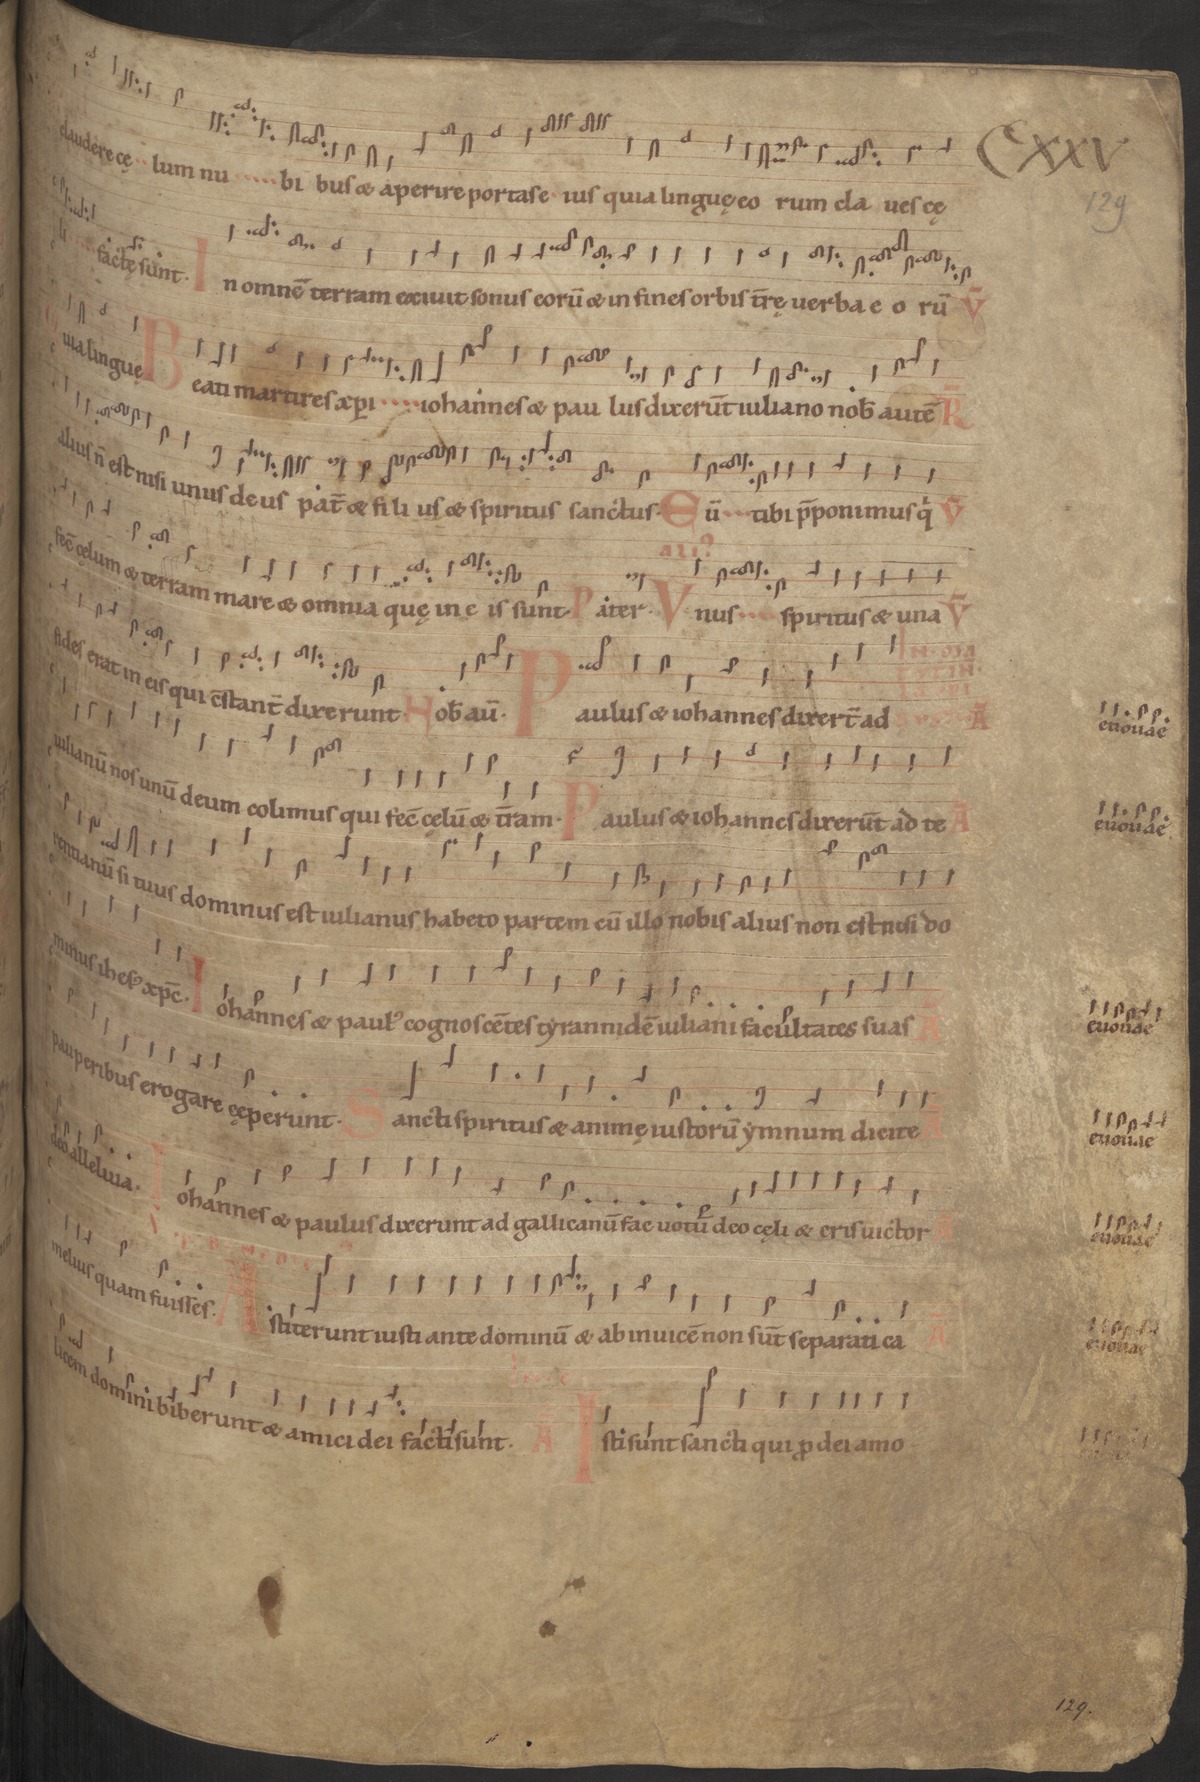 CXXV
129
claudere cę lum nu bi bus & aperire portas e ius quia linguę eo rum cla ues cę
li factę sunt. I n omnē terram exiuit sonus eorū & in fines orbis tr̄ę uerba e o rū V̄
uia linguę B eati martires xp̄i iohannes & pau lus dixerūt iuliano nob̄ autē R̄
alius n̄ est nisi unus deus pat̄ & fi li us & spiritus sanctus. E ū tibi p̄ponimus q̇ V̄
fec̄ cęlum & terram mare & omnia quę in e is sunt P ater V nus spiritus & una V̄
fides erat in eis qui c̄stant̄ dixerunt N ob̄ aū. P aulus & iohannes dixer̄t ad Ā euouae
iulianū nos unū deum colimus qui fec̄ cęlū & tr̄am. P aulus & iohannes dixerūt ad te Ā euouae
rentianū si tuus dominus est iulianus habeto partem cū illo nobis alius non est nisi do
minus ihesꝰ xp̄c. I ohannes & paulꝰ cognoscētes tyrannidē iuliani facultates suas Ā euouae
pauperibus erogare cęperunt. S ancti spiritus & animę iustorū ymnum dicite Ā euouae
deo alleluia. I ohannes & paulus dixerunt ad gallicanū fac uotū deo cęli & eris uictor Ā euouae
melius quam fuisses. A stiterunt iusti ante dominū & ab inuicē non sūt separati ca Ā euouae
licem domini biberunt & amici dei facti sunt. Ā I sti sunt sancti qui ꝓ dei amo
129.